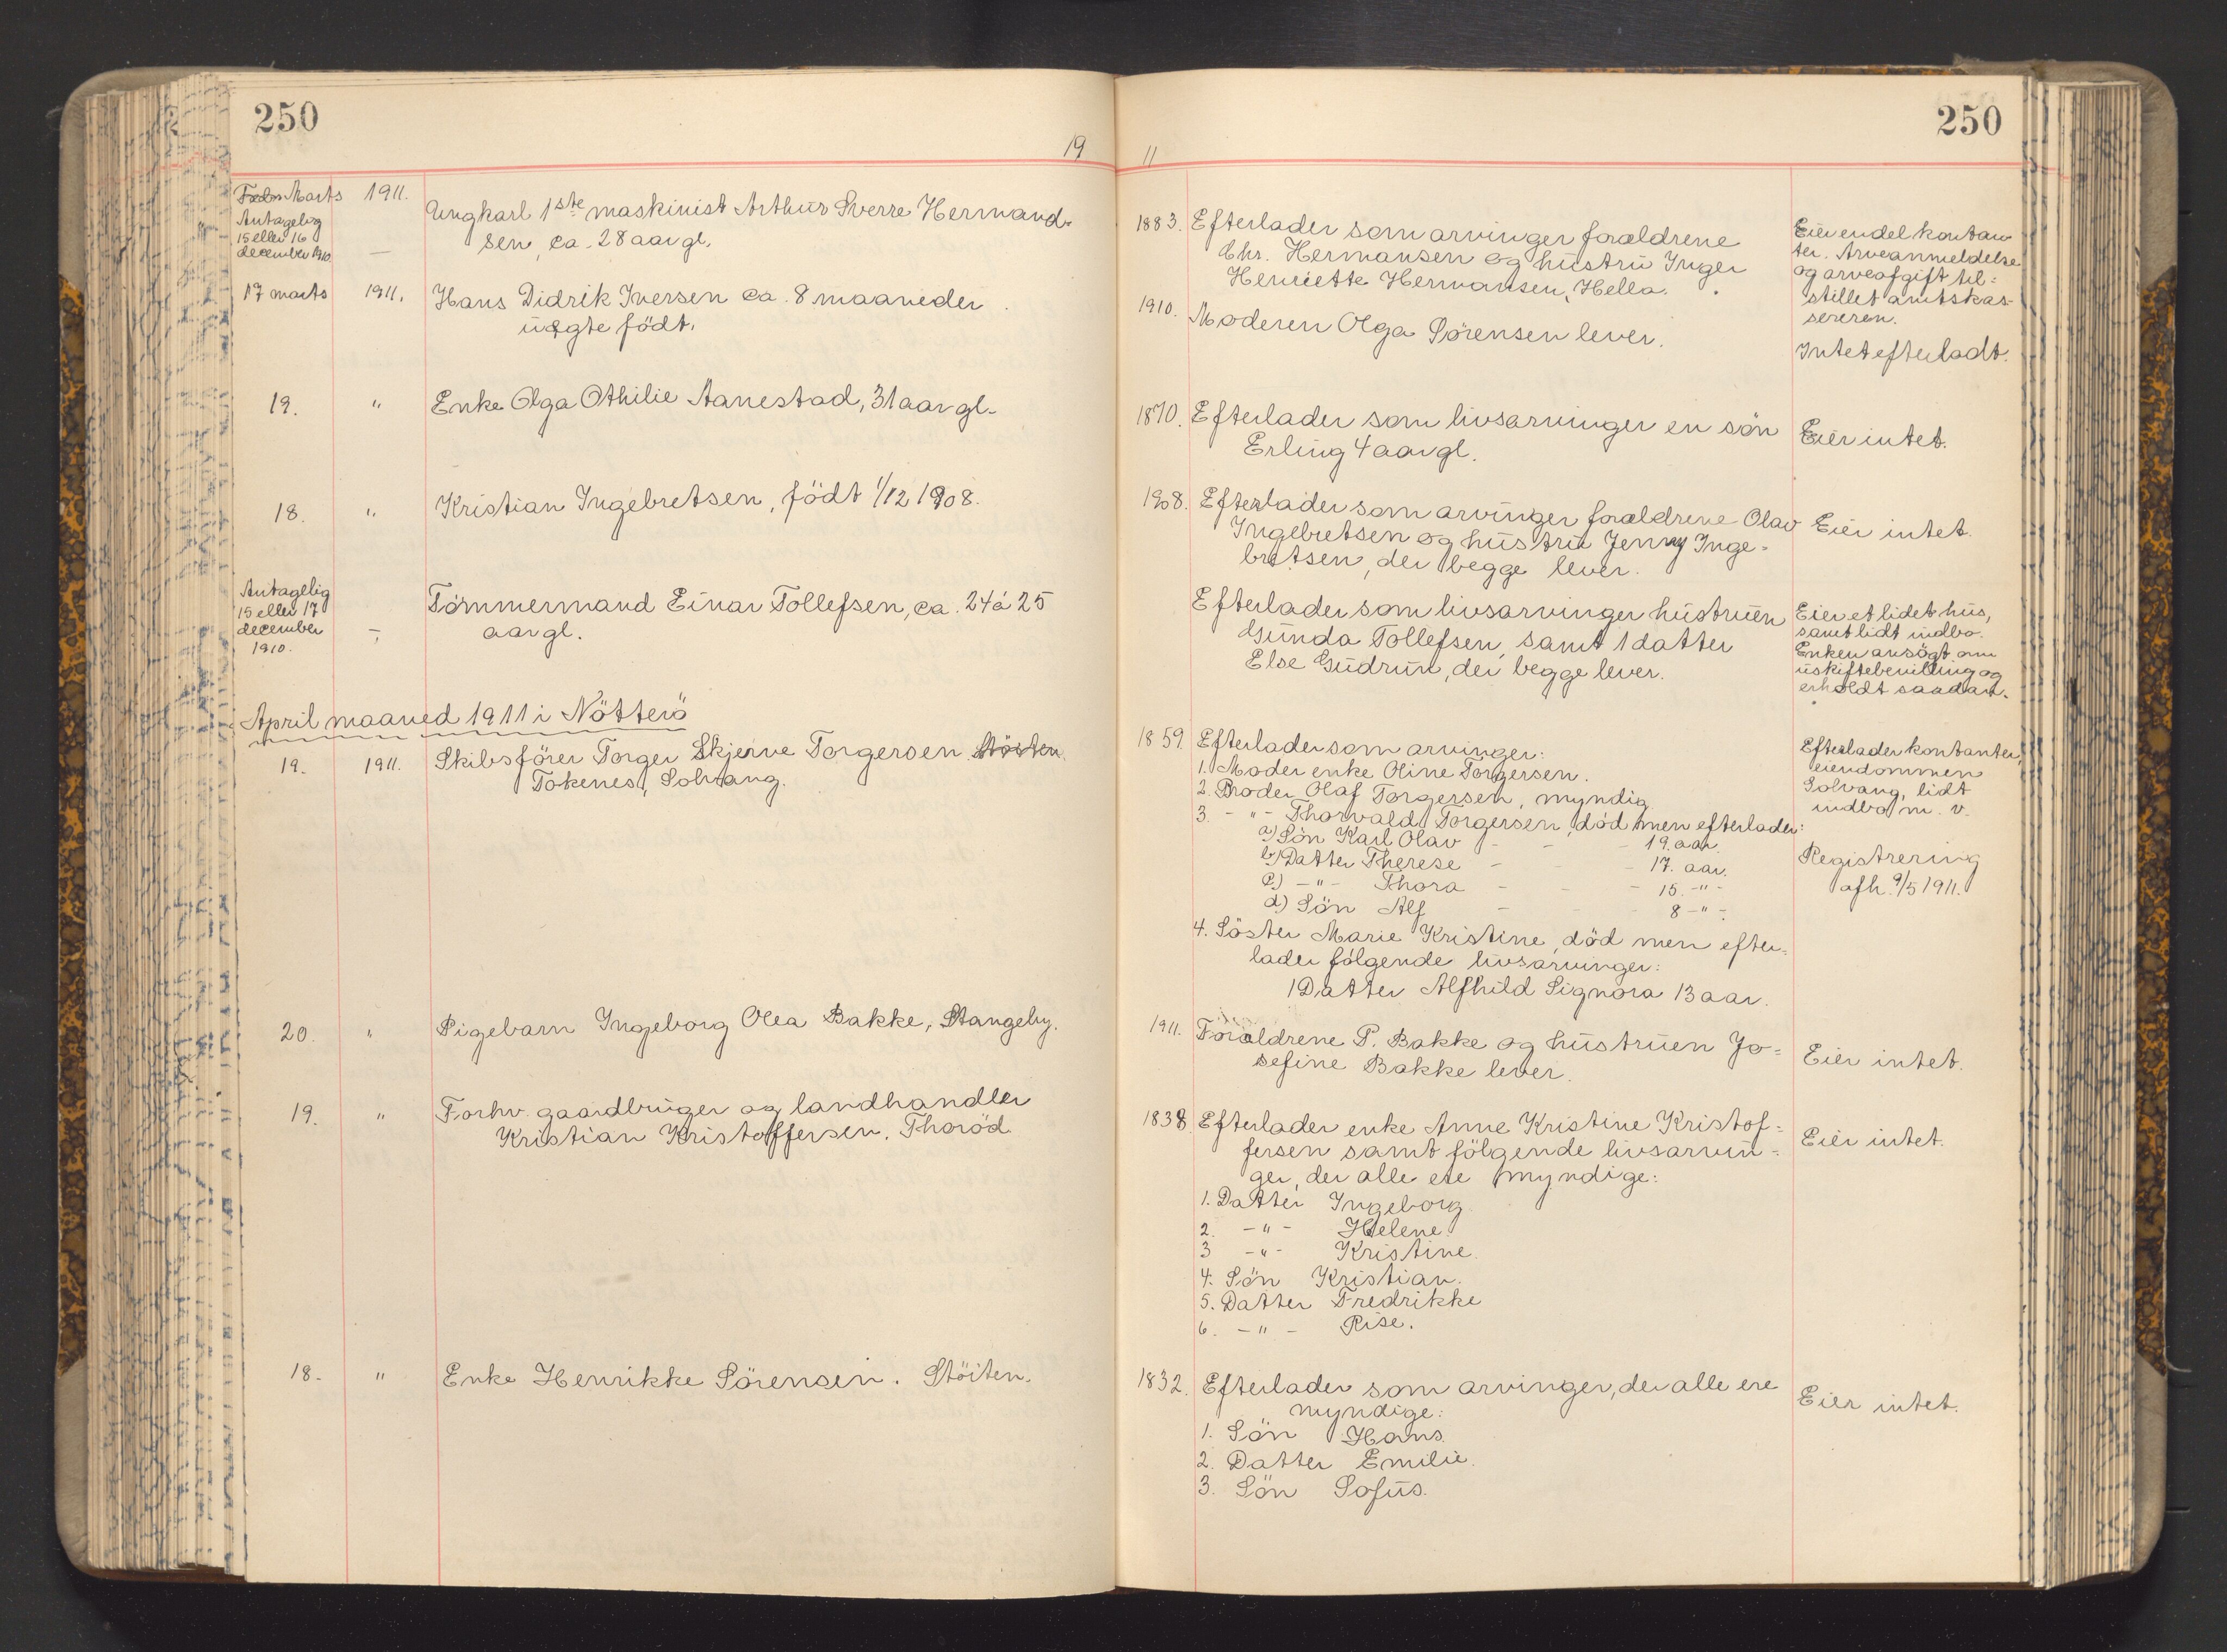 250
250
19 11
Marts 1911.
Antagelig
15 eller 16
december 1910. —
Ungkarl 1ste maskinist Arthur Sverre Hermand-
sen, ca. 28 aar gl.
1883. Efterlader som arvinger forældrene
Chr. Hermansen og hustru Inger
Henriette Hermansen, Hella.
Eier endel kontan-
ter. Arveanmeldelse
og arveafgift til-
stillet amtskas-
sereren.
17 marts 1911. Hans Didrik Iversen ca. 8 maaneder
uægte födt.
1910. Moderen Olga Sörensen lever.
Intet efterladt.
19. " Enke Olga Othilie Aanestad, 31 aar gl.
1870. Efterlader som livsarvinger en sön
Erling 4 aar gl.
Eier intet.
18. " Kristian Ingebretsen, födt 1/12 1908.
1908. Efterlader som arvinger forældrene Olav
Ingebretsen og hustru Jenny Inge-
bretsen, der begge lever.
Eier intet.
Antagelig
15 eller 17
december —
1910.
Tömmermand Einar Tollefsen, ca. 24 á 25
aar gl.
Efterlader som livsarvinger hustruen
Gunda Tollefsen, samt 1 datter
Else Gudrun, der begge lever.
Eier et lidet hus,
samt lidt indbo.
Enken ansögt om
uskiftebevilling og
erholdt saadan.
April maaned 1911 i Nötterö
19. 1911. Skibsförer Torger Skjerve Torgersen Stöiten.
Tokenes, Solvang.
1859. Efterlader som arvinger:
1. Moder enke Oline Torgersen.
2. Broder Olaf Torgersen, myndig
3. - " - Thorvald Torgersen, död men efterlader:
a) Sön Karl Olav - - - 19. aar.
b) Datter Therese - - 17. aar.
c) - " - Thora - - - 15. - " -
d) Sön Alf - - - 8 - " -
4. Söster Marie Kristine, död men efter-
lader fölgende livsarvinger:
1 Datter Alfhild Signora 13 aar.
Efterlader kontanter,
eiendommen
Solvang, lidt
indbo m. v.
Registrering
afh. 9/5 1911.
20. " Pigebarn Ingeborg Olea Bakke, Stangeby.
1911. Forældrene P. Bakke og hustruen Jo-
sefine Bakke lever.
Eier intet.
19. " Forhv. gaardbruger og landhandler
Kristian Kristoffersen. Thoröd
1838 Efterlader enke Anne Kristine Kristof-
fersen samt fölgende livsarvin-
ger, der alle ere myndige:
1. Datter Ingeborg
2. - " - Helene
3 - " - Kristine.
4. Sön Kristian.
5. Datter Fredrikke
6. - " - Rise.
Eier intet.
18. " Enke Henrikke Sörensen. Stöiten.
1832. Efterlader som arvinger, der alle ere
myndige:
1. Sön Hans.
2. Datter Emilie.
3. Sön Sofus.
Eier intet.